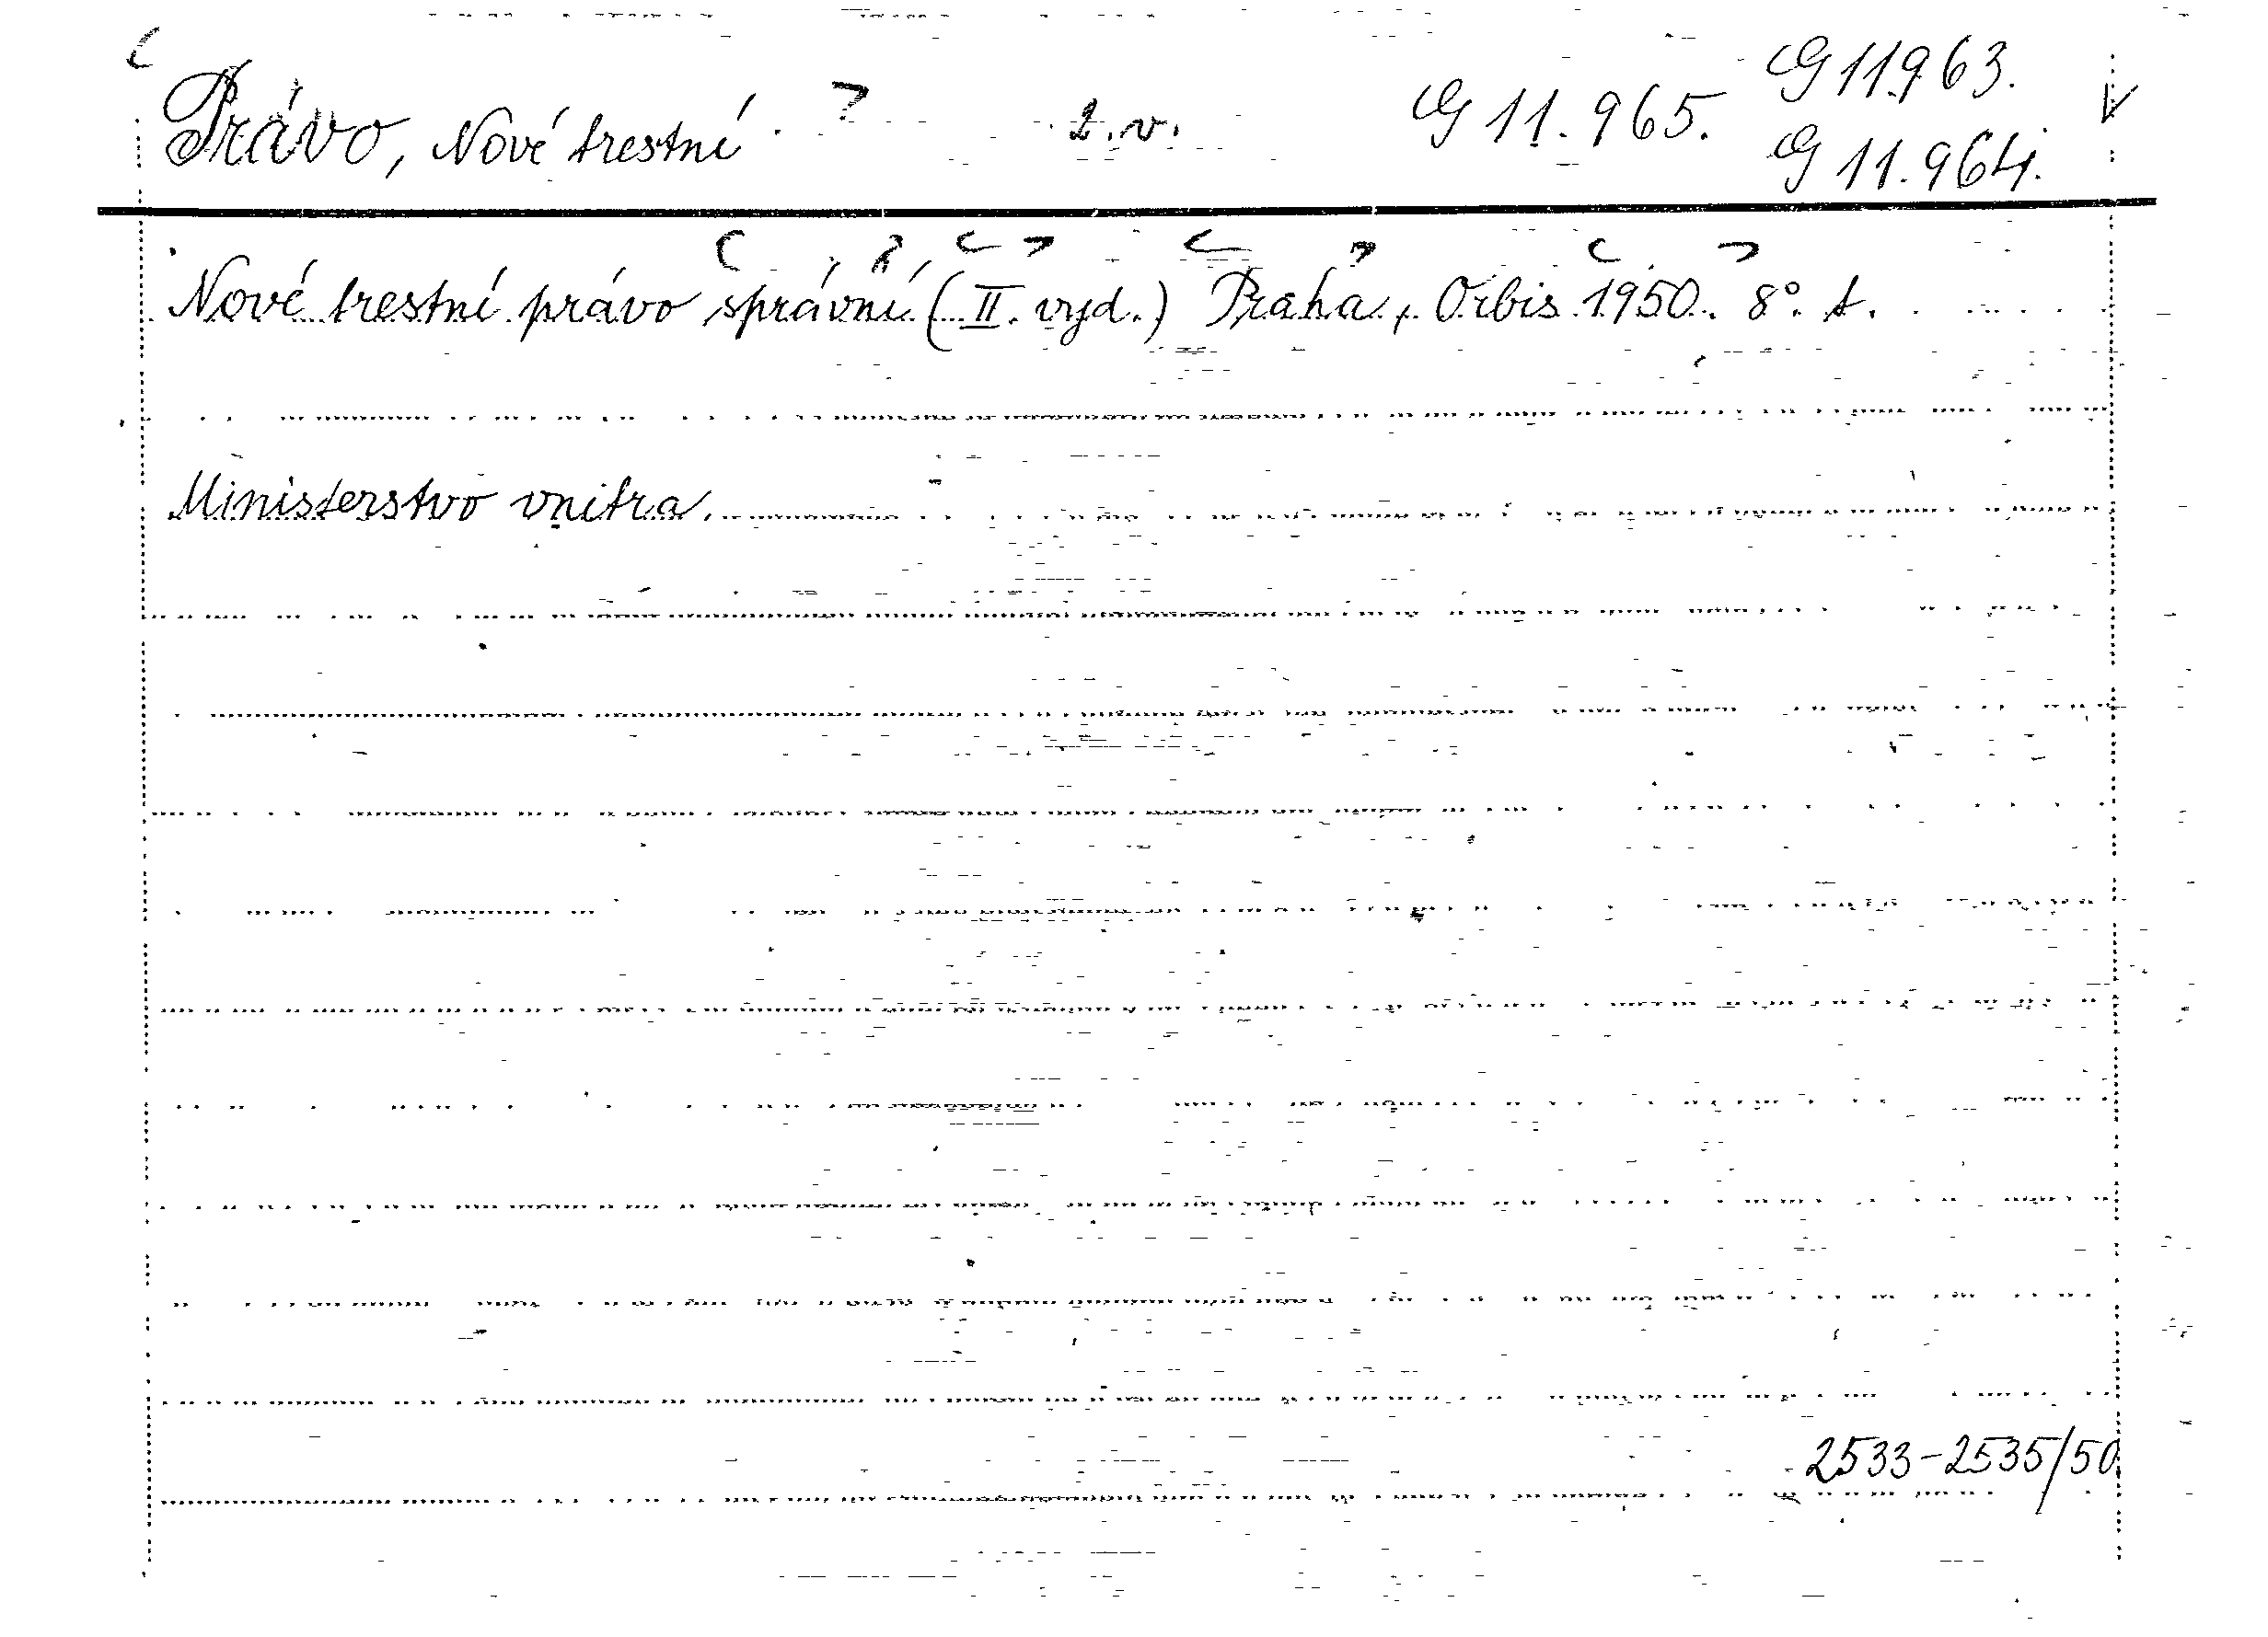 Právo, Nové trestní 2. v. G 11.965. G 11963.
G 11.964.
Nové trestní právo správní (II. vyd.) Praha, Orbis 1950. 8°. t.
Ministerstvo vnitra.
2533-2535/50